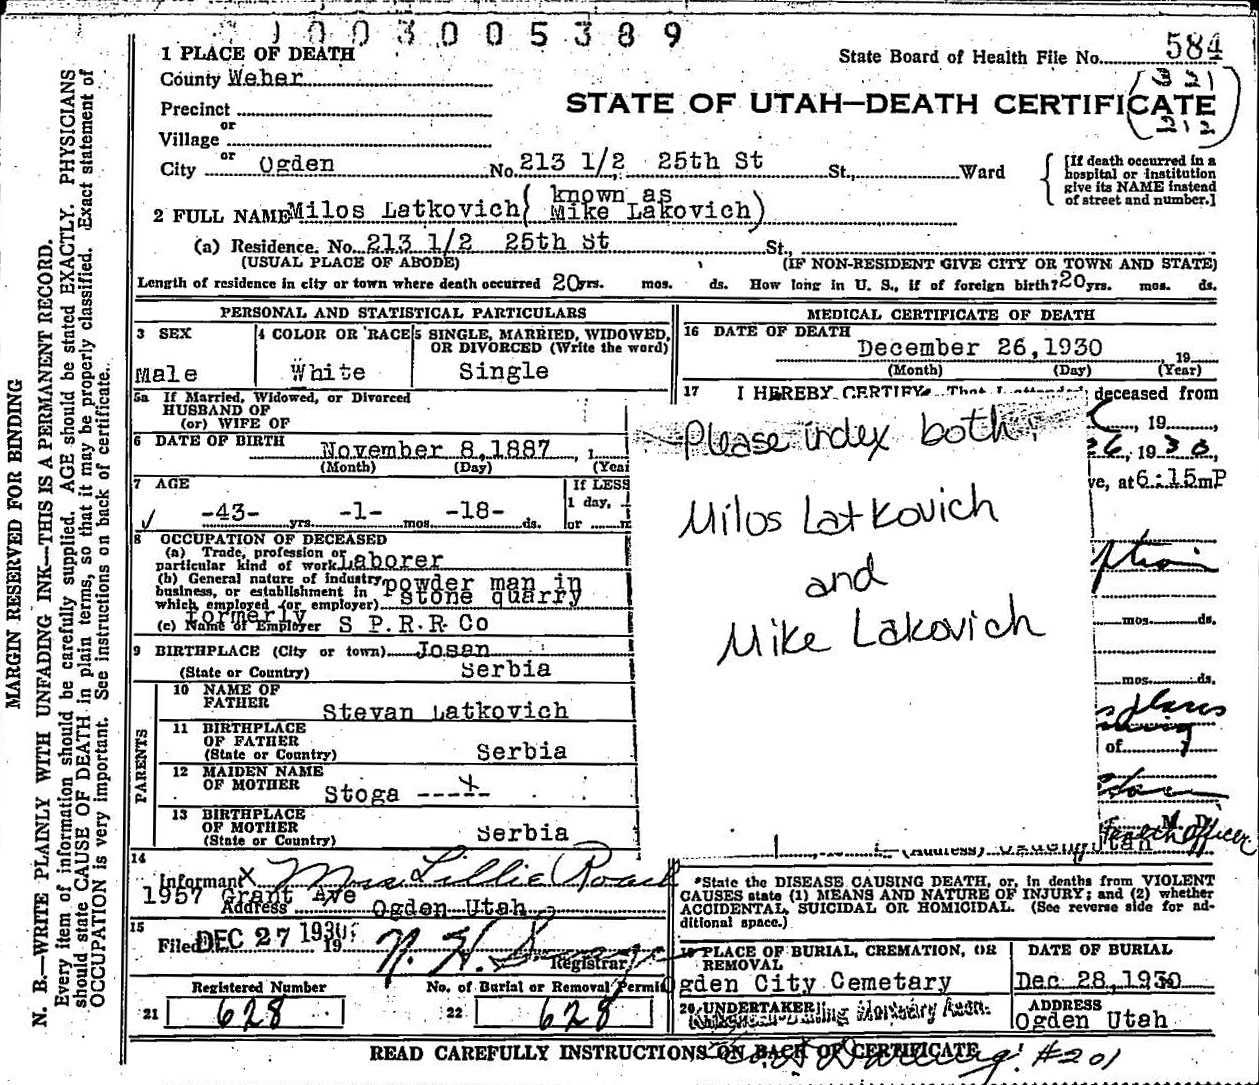 1003005389
1 PLACE OF DEATH
State Board of Health File No. 584
County Weber
(321)
STATE OF UTAH—DEATH CERTIFICATE
212
Precinct
or
Village
or
City Ogden No. 213 1/2 25th St St., Ward
[If death occurred in a hospital or institution give its NAME instead of street and number.]
2 FULL NAME Milos Latkovich (known as Mike Lakovich)
(a) Residence. No. 213 1/2 25th St St.,
(USUAL PLACE OF ABODE) (IF NON-RESIDENT GIVE CITY OR TOWN AND STATE)
Length of residence in city or town where death occurred 20 yrs. mos. ds. How long in U. S., if of foreign birth? 20 yrs. mos. ds.
PERSONAL AND STATISTICAL PARTICULARS
3 SEX
Male
4 COLOR OR RACE
White
5 SINGLE, MARRIED, WIDOWED, OR DIVORCED (Write the word)
Single
5a If Married, Widowed, or Divorced
HUSBAND OF
(or) WIFE OF
6 DATE OF BIRTH November 8,1887, 1
(Month) (Day)
7 AGE
-43- yrs. -1- mos. -18- ds.
If LESS
1 day,
or
8 OCCUPATION OF DECEASED
(a) Trade, profession or
particular kind of work Laborer
(b) General nature of industry,
business, or establishment in
which employed (or employer) powder man in stone quarry
formerly
(c) Name of Employer S P.R.R. Co
9 BIRTHPLACE (City or town) Josan
(State or Country) Serbia
PARENTS
10 NAME OF FATHER Stevan Latkovich
11 BIRTHPLACE OF FATHER
(State or Country) Serbia
12 MAIDEN NAME OF MOTHER Stoga -----
13 BIRTHPLACE OF MOTHER
(State or Country) Serbia
14
Informant X Mrs Lillie
1957 Grant Ave
Address Ogden Utah
15
Filed DEC 27 1930 19
Registrar
Registered Number
21 628
No. of Burial or Removal Permit
22 628
MEDICAL CERTIFICATE OF DEATH
16 DATE OF DEATH
December 26,1930, 19
(Month) (Day) (Year)
17 I HEREBY CERTIFY, That I attended deceased from
, 19
26, 1930,
at 6:15mP
Please index both:
Milos Latkovich
and
Mike Lakovich
mos. ds.
mos. ds.
of
M. D.
Health Officer
(Address) Ogden, Utah
*State the DISEASE CAUSING DEATH, or, in deaths from VIOLENT
CAUSES state (1) MEANS AND NATURE OF INJURY; and (2) whether
ACCIDENTAL, SUICIDAL OR HOMICIDAL. (See reverse side for additional space.)
19 PLACE OF BURIAL, CREMATION, OR REMOVAL
Ogden City Cemetary
DATE OF BURIAL
Dec 28,1930
20 UNDERTAKER
Mortuary Assn.
ADDRESS
Ogden Utah
READ CAREFULLY INSTRUCTIONS ON BACK OF CERTIFICATE
#201
MARGIN RESERVED FOR BINDING
N. B.—WRITE PLAINLY WITH UNFADING INK—THIS IS A PERMANENT RECORD.
Every item of information should be carefully supplied. AGE should be stated EXACTLY. PHYSICIANS
should state CAUSE OF DEATH in plain terms, so that it may be properly classified. Exact statement of
OCCUPATION is very important. See instructions on back of certificate.